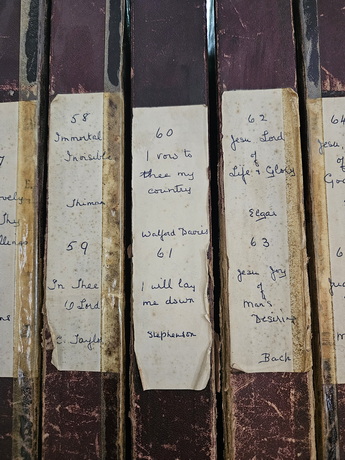 58
Immortal
Invisible
Thiman
59
In Thee
O Lord
C. Taylo
60
I vow to
thee my
country
Walford Davies
61
I will lay
me down
Stephenson
62
Jesu Lord
of
Life & Glory
Elgar
63
Jesu Joy
of
Man's
Desiring
Bach
64